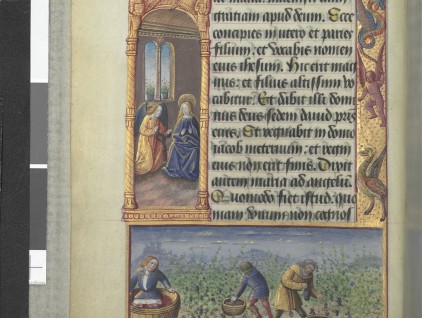 gratiam apud deum. Ecce
concipies in utero et paries
filium: et vocabis nomen
eius ihesum. Hic erit mag
nus: et filius altissimi vo
cabitur. Et dabit illi domi
nus deus sedem david pa
eius. Et regnabit in domo
iacob in eternum: et regni
eius non erit finis. Dixit
autem maria ad angelum.
Quomodo fiet istud: quo
niam virum non cognos